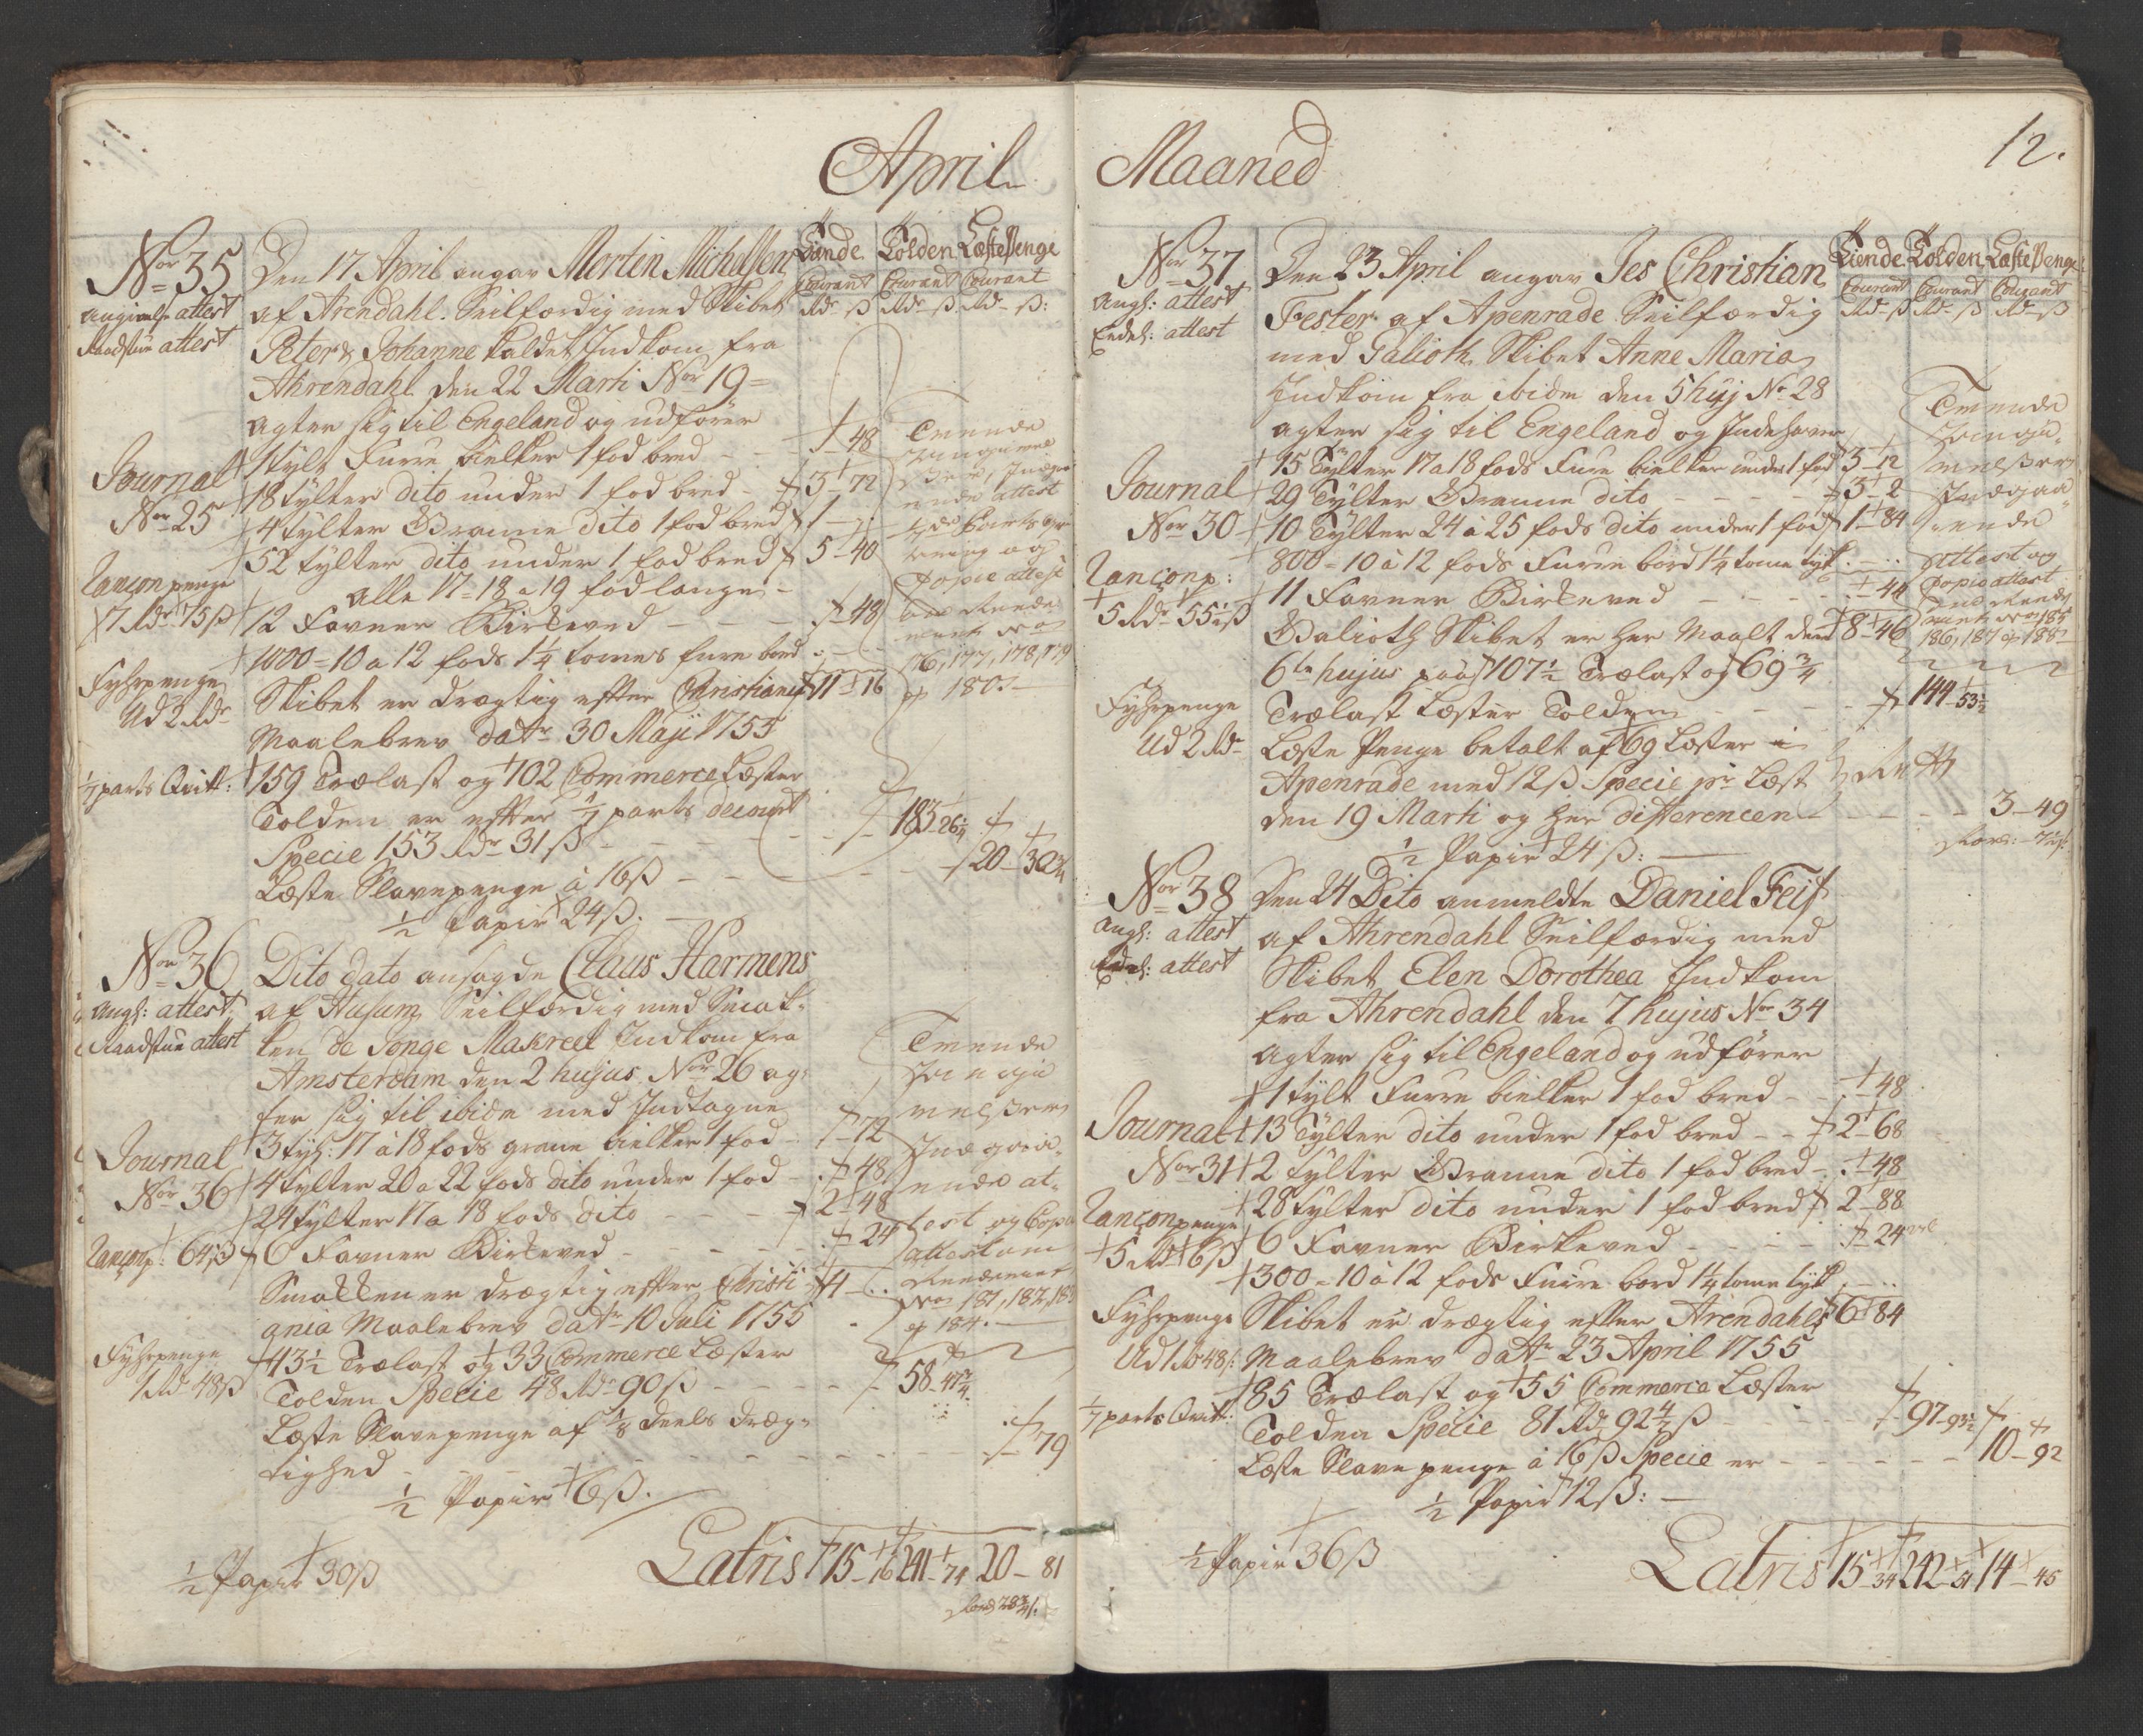 April
Nor 35
angivels attest
Raadstue attest
Journal
Nor 25
Ranconpenge
7 Rdr 75 ß
Fyhrpenge
Ud 2 Rdr
1/7 parts Qvitt:
Den 17 April angav Morten Michelsen
af Arendahl. Seilfærdig med Skibet
Peter & Johanne kaldet Indkom fra
Ahrendahl den 22 Marti Nor 19 =
agter sig til Engeland og udfører
1 tylt Furre bielker 1 fod bred - -
18 tylter dito under 1 fod bred -
4 tylter Granne dito 1 fod bred
52 tylter dito under 1 fod bred
alle 17 - 18 a 19 fod lange -
12 Favner Birkeved - - -
1000 = 10 a 12 fods 1 1/4 tomes furre bord
Skibet er drægtig efter Christiania
Maalebrev datr 30 Maji 1755
159 Trælast og 102 Commerce Læster
Tolden er efter 1/7 parts decourt
Specie 153 Rdr 31 ß - - -
Læste Slavepenge à 16 ß - -
1/2 Papir 24 ß. -
Tiende Tolden LæstePenge
Courant Courant Courant
Rdr - ß Rdr - ß Rdr - ß:
48
3 - 72
1 - "
5 - 40
48
11 - 16
Tvende
attest
Copie attest
176, 177, 178, 179
og 180. -
183 - 26 1/4
20 - 30 3/4
Nor 36
angs: attest
Raadstue attest
Journal
Nor 36
Ranconp: 64 ß
Fyhrpenge
1 Rdr 48 ß
Dito dato ansagde Claus Harmens
af Husum Seilfærdig med Smak-
ken de Jonge Makreel Indkom fra
Amsterdam den 2 hujus Nor 26 ag-
ter sig til ibidm med Indtagne
3 tyl: 17 à 18 fods grane bielker 1 fod -
4 tylter 20 a 22 fods dito under 1 fod -
24 tylter 17 a 18 fods dito - - -
6 Favner Birkeved - - - -
Smakken er drægtig efter Christi-
ania Maalebrev datr 10 Juli 1755
43 1/2 Trælast og 33 Commerce Læster
Tolden Specie 48 Rdr 90 ß - - - -
Læste Slavepenge af 1/8 deels dræg-
tighed - - - - - -
1/2 Papir 6 ß.
72
48
2 - 48
24
4 - "
Tvende
attest og Copie
No 181, 182, 183
og 184. -
58 - 47 3/4
79
1/2 Papir 30 ß
Latris 15 - 16 241 - 74 20 - 81
Maaned
12.
Nor 37
angs: attest
Endel: attest
Journal
Nor 30
Ranconp:
5 Rdr 55 1/2 ß
Fyhrpenge
Ud 2 Rdr
Den 23 April angav Jes Christian
Fester af Apenrade Seilfærdig
med Galioth Skibet Anne Maria
Indkom fra ibidm den 5 huj No 28
agter sig til Engeland og Indehaver
15 Tylter 17 a 18 fods Furre bielker under 1 fod
29 Tylter Granne dito - - - -
10 Tylter 24 a 25 fods dito under 1 fod
800 - 10 à 12 fods Furre bord 1 1/4 tome tyk
11 Favner Birkeved - - - -
Galioth Skibet er her Maalt den
6te hujus paa 107 1/2 Trælast og 69 3/4
Trælast Læster Tolden - - - -
Læste Penge betalt af 69 Læster i
Apenrade med 12 ß Specie pr Læst
den 19 Marti og her differencen - - - -
1/2 Papir 24 ß: -
Tiende Tolden LæstePenge
Courant Courant Courant
Rdr - ß Rdr - ß Rdr - ß
3 - 12
3 - 2
1 - 84
44
8 - 46
Tvende
attest og
Copie attest
186, 187 og 188
144 - 53 1/2
3 - 49
Nor 38
angs: attest
Endel: attest
Journal
Nor 31
Ranconpenge
5 Rdr 6 ß
Fyhrpenge
Ud 1 Rdr 48 ß:
1/7 parts Qvitt:
Den 24 Dito anmeldte Daniel Feif
af Ahrendahl Seilfærdig med
Skibet Elen Dorothea Indkom
fra Ahrendahl den 7 hujus Nor 34
agter sig til Engeland og udfører
1 tylt Furre bielker 1 fod bred - -
13 Tylter dito under 1 fod bred - -
2 Tylter Granne dito 1 fod bred -
28 tylter dito under 1 fod bred
6 Favner Birkeved - - - -
300 - 10 à 12 fods Furre bord 1 1/4 tome tyk
Skibet er drægtig efter Arendahls
Maalebrev datr 23 April 1755
85 Trælast og 55 Commerce Læster
Tolden Specie 81 Rdr 92 4/7 ß - - -
Læste Slave penge à 16 ß Specie er - - - -
1/2 Papir 12 ß: -
48
2 - 68
48
2 - 88
24
6 - 84
97 - 93 1/2
10 - 92
1/2 Papir 36 ß
Latris 15 - 34 242 - 51 14 - 45